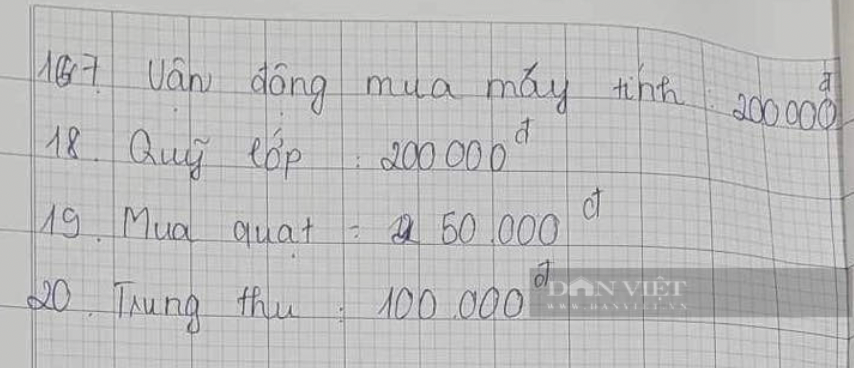 17. Vận động mua máy tính : 200 000đ
18. Quỹ lớp : 200 000đ
19. Mua quạt : 50.000đ
20. Trung thu : 100.000đ
DÂN VIỆT
WWW.DANVIET.VN